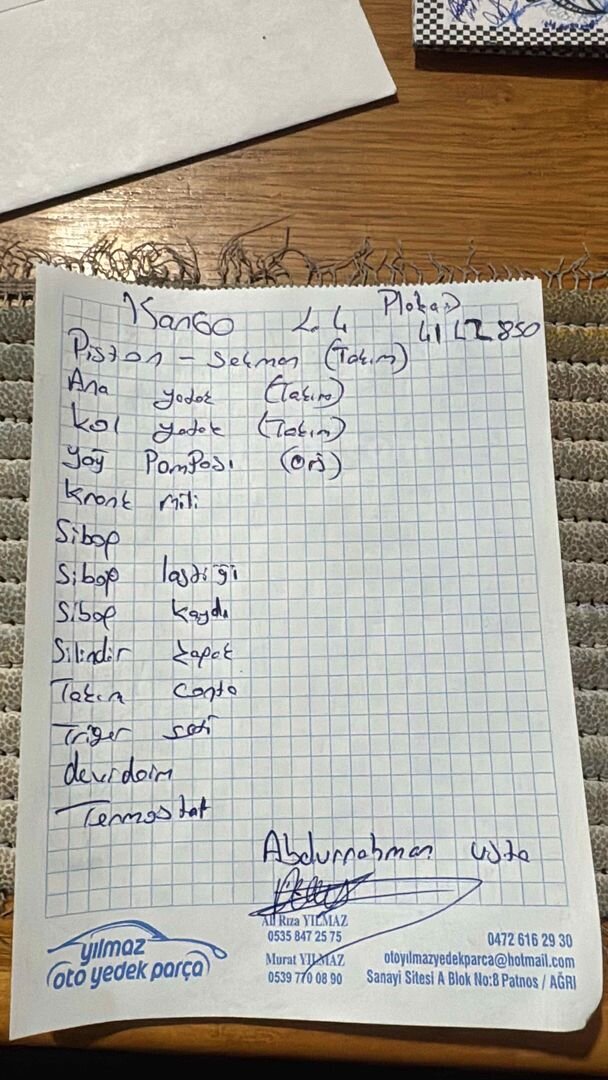 Kango 1.4 Plaka
41 LZ 850
Piston - Sekman (Takım)
Ana yatak (Takım)
kol yatak (Takım)
yağ Pompası (Orj)
Krank mili
Sibop
Sibop lastiği
Sibop kaydı
Silindir kapak
Takım conta
Triger seti
devirdaim
Termostat
Abdurrahman usta
yılmaz
oto yedek parça
Ali Rıza YILMAZ
0535 847 25 75
Murat YILMAZ
0539 770 08 90
0472 616 29 30
otoyilmazyedekparca@hotmail.com
Sanayi Sitesi A Blok No:8 Patnos / AĞRI